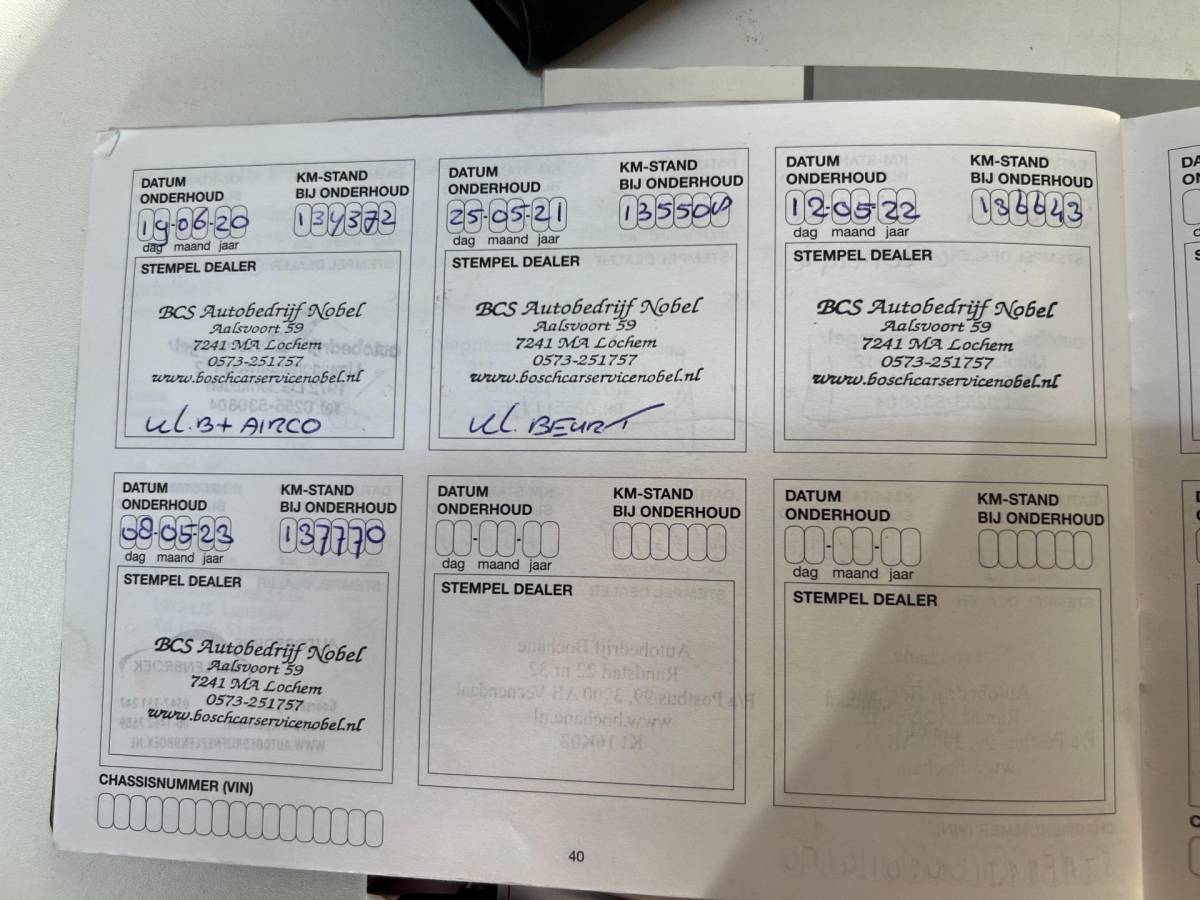 DATUM ONDERHOUD
KM-STAND BIJ ONDERHOUD
19-06-20
134372
dag maand jaar
STEMPEL DEALER
BCS Autobedrijf Nobel
Aalsvoort 59
7241 MA Lochem
0573-251757
www.boschcarservicenobel.nl
Kl. B + AIRCO
DATUM ONDERHOUD
KM-STAND BIJ ONDERHOUD
25-05-21
135509
dag maand jaar
STEMPEL DEALER
BCS Autobedrijf Nobel
Aalsvoort 59
7241 MA Lochem
0573-251757
www.boschcarservicenobel.nl
Kl. BEURT
DATUM ONDERHOUD
KM-STAND BIJ ONDERHOUD
12-05-22
136643
dag maand jaar
STEMPEL DEALER
BCS Autobedrijf Nobel
Aalsvoort 59
7241 MA Lochem
0573-251757
www.boschcarservicenobel.nl
DATUM ONDERHOUD
KM-STAND BIJ ONDERHOUD
08-05-23
137770
dag maand jaar
STEMPEL DEALER
BCS Autobedrijf Nobel
Aalsvoort 59
7241 MA Lochem
0573-251757
www.boschcarservicenobel.nl
DATUM ONDERHOUD
KM-STAND BIJ ONDERHOUD
dag maand jaar
STEMPEL DEALER
DATUM ONDERHOUD
KM-STAND BIJ ONDERHOUD
dag maand jaar
STEMPEL DEALER
CHASSISNUMMER (VIN)
40